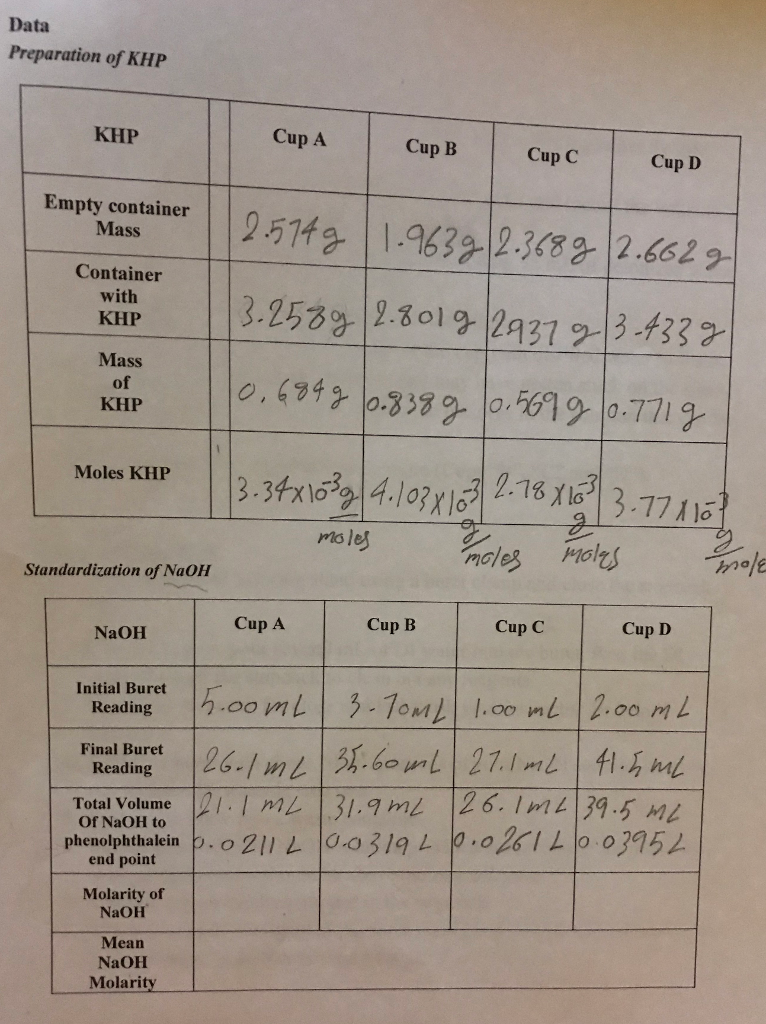 Data
Preparation of KHP
KHP Cup A Cup B Cup C Cup D
Empty container Mass 2.574g 1.963g 2.368g 2.662g
Container with KHP 3.258g 2.801g 2937 g 3.433g
Mass of KHP 0.684g 0.838g 0.569g 0.771g
Moles KHP 3.34x10-3 g/moles 4.103x10-3 g/moles 2.78x10-3 g/moles 3.77x10-3 g/mole
Standardization of NaOH
NaOH Cup A Cup B Cup C Cup D
Initial Buret Reading 5.00mL 3.70mL 1.00 mL 2.00 mL
Final Buret Reading 26.1mL 35.60mL 27.1mL 41.5 mL
Total Volume Of NaOH to phenolphthalein end point 21.1 mL 31.9mL 26.1mL 39.5 mL
0.0211 L 0.0319 L 0.0261 L 0.0395L
Molarity of NaOH
Mean NaOH Molarity